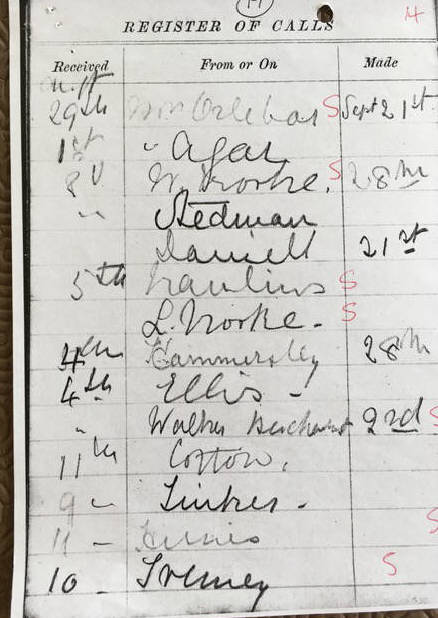 17 14
REGISTER OF CALLS
Received From or On Made
29th Orlebar S Sept 21st
1st " Agar
8 W. Brooke. S 28th
" Stedman
Daniell 21st
5th Rawlins S
L. Brooke - S
4th Hammersley 28th
4th Ellis - !
" Walter 23rd S
11th Cotton.
9 - Tinker -
11 - S
10 - S